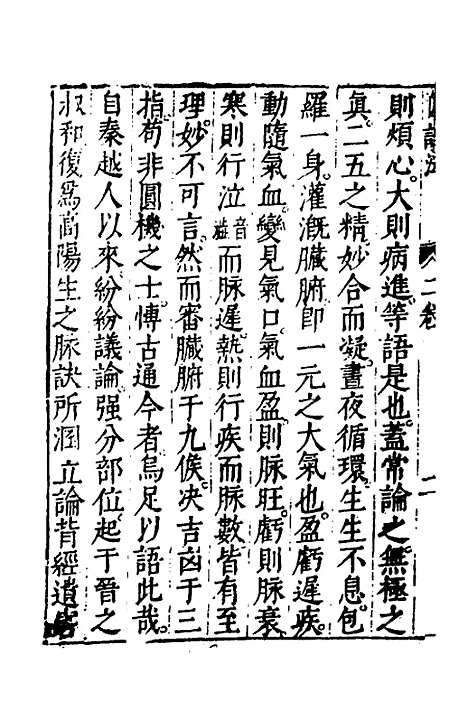 二卷
二
則煩心。大則病進。等語是也。蓋常論之。無極之
眞。二五之精。妙合而凝。晝夜循環。生生不息。包
羅一身。灌漑臟腑。卽一元之大氣也。盈虧遲疾。
動隨氣血。變見氣口。氣血盈則脉旺。虧則脉衰
寒則行泣音澁而脉遲。熱則行疾而脉數。皆有至
理。妙不可言。然而審臟腑于九候。决吉凶于三
指。苟非圓機之士。博古通今者。烏足以語此哉。
自秦越人以來。紛紛議論。强分部位。起于晉之
叔和。復爲高陽生之脉訣所溷。立論背經。遺